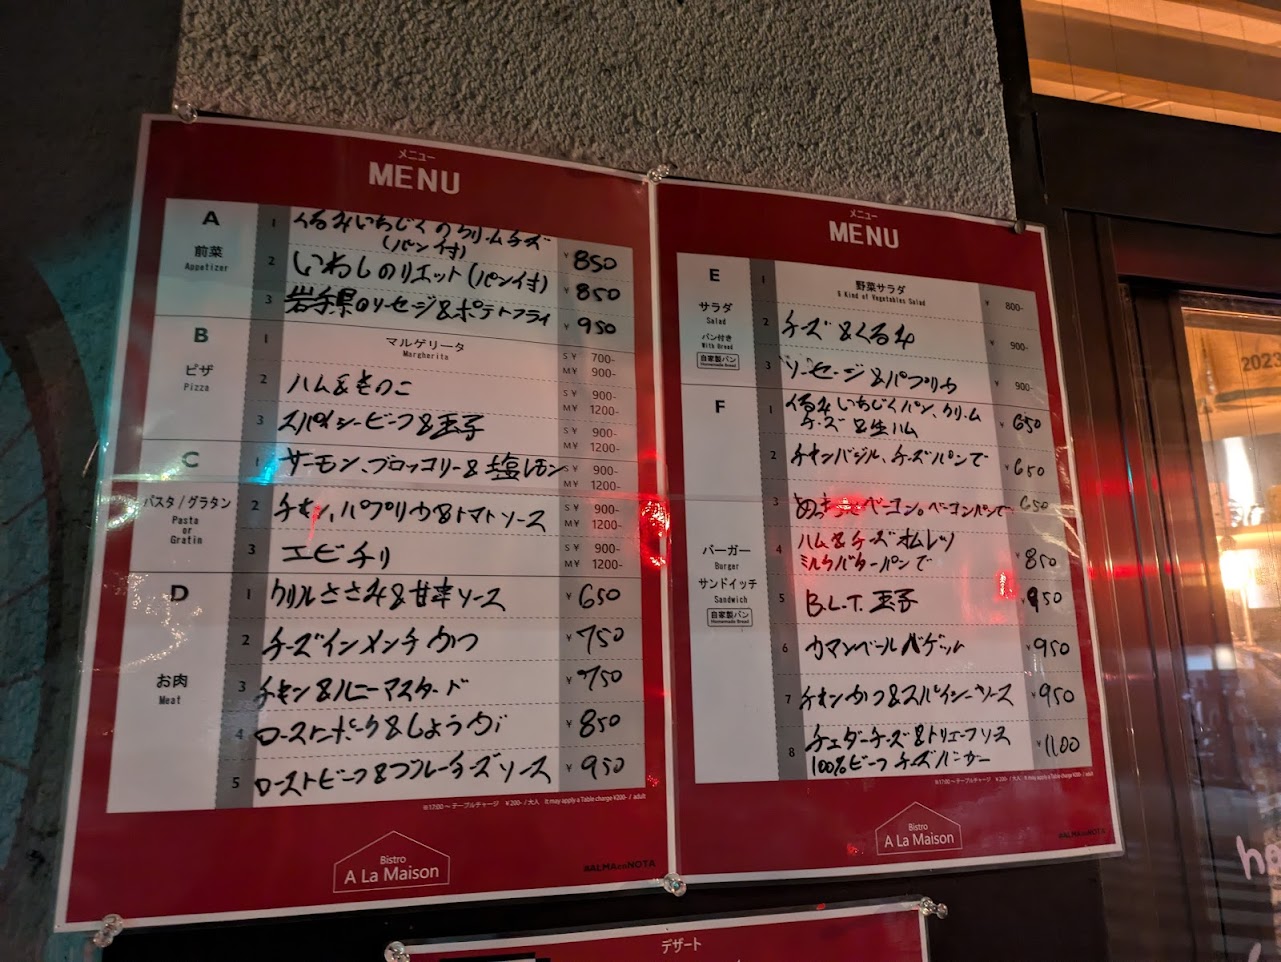 メニュー
MENU
A
前菜
Appetizer
1 くるみいちじくのクリームチーズ
(パン付) ¥850
2 いわしのリエット(パン付) ¥850
3 岩手県のソーセージ&ポテトフライ ¥950
B
ピザ
Pizza
1 マルゲリータ S¥ 700-
Margherita M¥ 900-
2 ハム&きのこ S¥ 900-
M¥ 1200-
3 スパイシービーフ&玉子 S¥ 900-
M¥ 1200-
C
パスタ/グラタン
Pasta
or
Gratin
1 サーモン、ブロッコリー&塩レモン S¥ 900-
M¥ 1200-
2 チキン、パプリカ&トマトソース S¥ 900-
M¥ 1200-
3 エビチリ S¥ 900-
M¥ 1200-
D
お肉
Meat
1 グリルささみ&甘辛ソース ¥650
2 チーズインメンチかつ ¥750
3 チキン&ハニーマスタード ¥750
4 ローストポーク&しょうが ¥850
5 ローストビーフ&ブルーチーズソース ¥950
※17:00～テーブルチャージ ¥200-/大人 It may apply a Table charge ¥200- / adult
Bistro
A La Maison
#ALMAcoNOTA
メニュー
MENU
E
サラダ
Salad
パン付き
With Bread
自家製パン
Homemade Bread
1 野菜サラダ ¥ 800-
5 Kind of Vegetables Salad
2 チーズ&くるみ ¥ 900-
3 ソーセージ&パプリカ ¥ 900-
F
バーガー
Burger
サンドイッチ
Sandwich
自家製パン
Homemade Bread
1 くるみいちじくパン、クリーム
チーズ&生ハム ¥650
2 チキンバジル、チーズパンで ¥650
3 ベーコン。ベーコンパンで 650
4 ハム&チーズオムレツ
ミルクバターパンで ¥850
5 B.L.T.玉子 ¥950
6 カマンベールバゲット ¥950
7 チキンかつ&スパイシーソース ¥950
8 チェダーチーズ&トリュフソース
100%ビーフチーズバーガー ¥1100
※17:00～テーブルチャージ ¥200-/大人 It may apply a Table charge ¥200- / adult
Bistro
A La Maison
#ALMAcoNOTA
デザート
2023